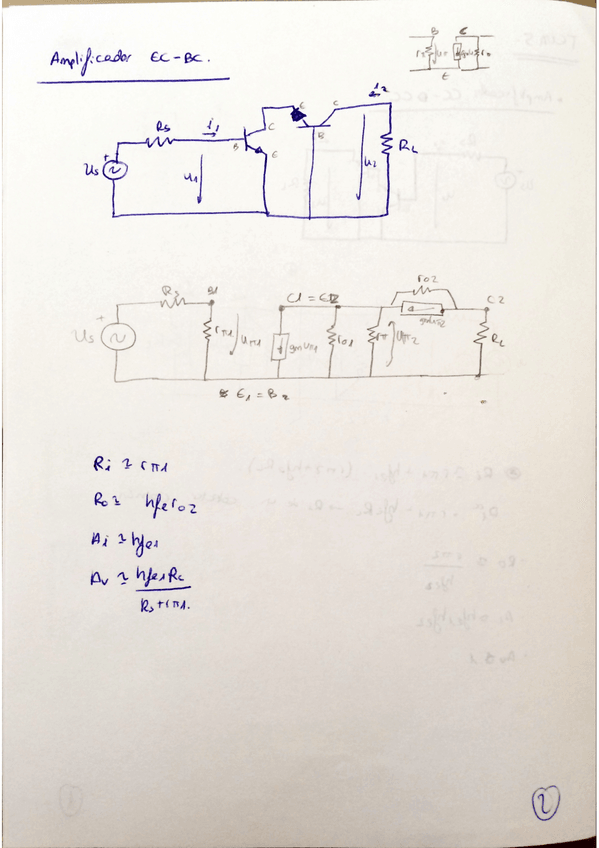 Amplificador EC-BC.
B C
rπ uπ gmuπ ro
E
Rs i1 B C E E B C i2
us + u1 u2 RL
Rs B1 C1 = E2 ro2 C2
us + rπ1 uπ1 gmuπ1 ro1 rπ uπ2 gmuπ2 RL
E1 = B2
Ri ≃ rπ1
Ro ≃ hfe ro2
Ai ≃ hfe1
Av ≃ hfe1RL
Rs+rπ1.
2